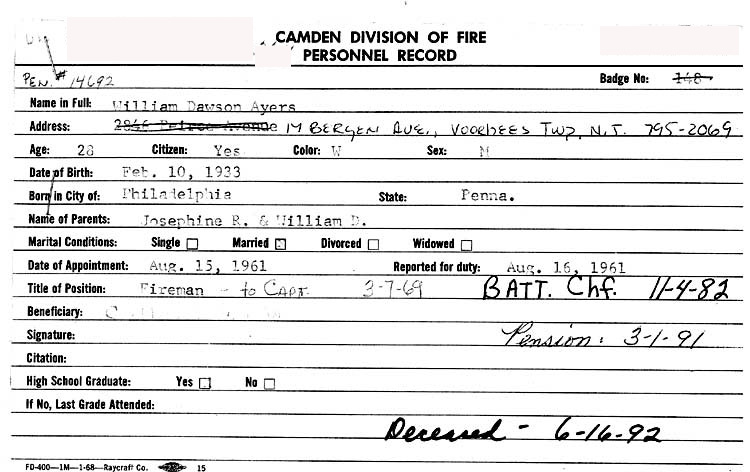 CAMDEN DIVISION OF FIRE
PERSONNEL RECORD
PEN. # 14692 Badge No: 148
Name in Full: William Dawson Ayers
Address: 2846 Peirce Avenue 17 BERGEN AVE., VOORHEES TWP, N.J. 795-2069
Age: 28 Citizen: Yes Color: W Sex: M
Date of Birth: Feb. 10, 1933
Born in City of: Philadelphia State: Penna.
Name of Parents: Josephine R. & William D.
Marital Conditions: Single Married Divorced Widowed
Date of Appointment: Aug. 15, 1961 Reported for duty: Aug. 16, 1961
Title of Position: Fireman - to CAPT. 3-7-69 BATT. Chf. 11-4-82
Beneficiary:
Signature: Pension: 3-1-91
Citation:
High School Graduate: Yes No
If No, Last Grade Attended:
Deceased - 6-16-92
FD-400—1M—1-68—Raycraft Co. 15